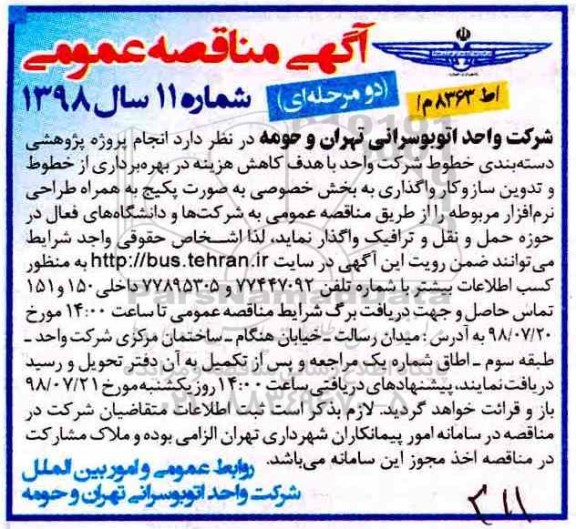 آگهی مناقصه عمومی
(دو مرحله‌ای)
شماره ۱۱ سال ۱۳۹۸
/ط ۸۳۶۳ م/
شرکت واحد اتوبوسرانی تهران و حومه در نظر دارد انجام پروژه پژوهشی
دسته‌بندی خطوط شرکت واحد با هدف کاهش هزینه در بهره‌برداری از خطوط
و تدوین سازوکار واگذاری به بخش خصوصی به صورت پکیج به همراه طراحی
نرم‌افزار مربوطه را از طریق مناقصه عمومی به شرکت‌ها و دانشگاه‌های فعال در
حوزه حمل و نقل و ترافیک واگذار نماید، لذا اشخاص حقوقی واجد شرایط
می‌توانند ضمن رویت این آگهی در سایت http://bus.tehran.ir به منظور
کسب اطلاعات بیشتر با شماره تلفن ۷۷۴۴۷۰۹۲ و ۷۷۸۹۵۳۰۵ داخلی ۱۵۰ و ۱۵۱
تماس حاصل و جهت دریافت برگ شرایط مناقصه عمومی تا ساعت ۱۴:۰۰ مورخ
۹۸/۰۷/۲۰ به آدرس : میدان رسالت ـ خیابان هنگام ـ ساختمان مرکزی شرکت واحد ـ
طبقه سوم ـ اطاق شماره یک مراجعه و پس از تکمیل به آن دفتر تحویل و رسید
دریافت نمایند، پیشنهادهای دریافتی ساعت ۱۴:۰۰ روز یکشنبه مورخ ۹۸/۰۷/۲۱
باز و قرائت خواهد گردید. لازم بذکر است ثبت اطلاعات متقاضیان شرکت در
مناقصه در سامانه امور پیمانکاران شهرداری تهران الزامی بوده و ملاک مشارکت
در مناقصه اخذ مجوز این سامانه می‌باشد.
روابط عمومی و امور بین الملل
شرکت واحد اتوبوسرانی تهران و حومه